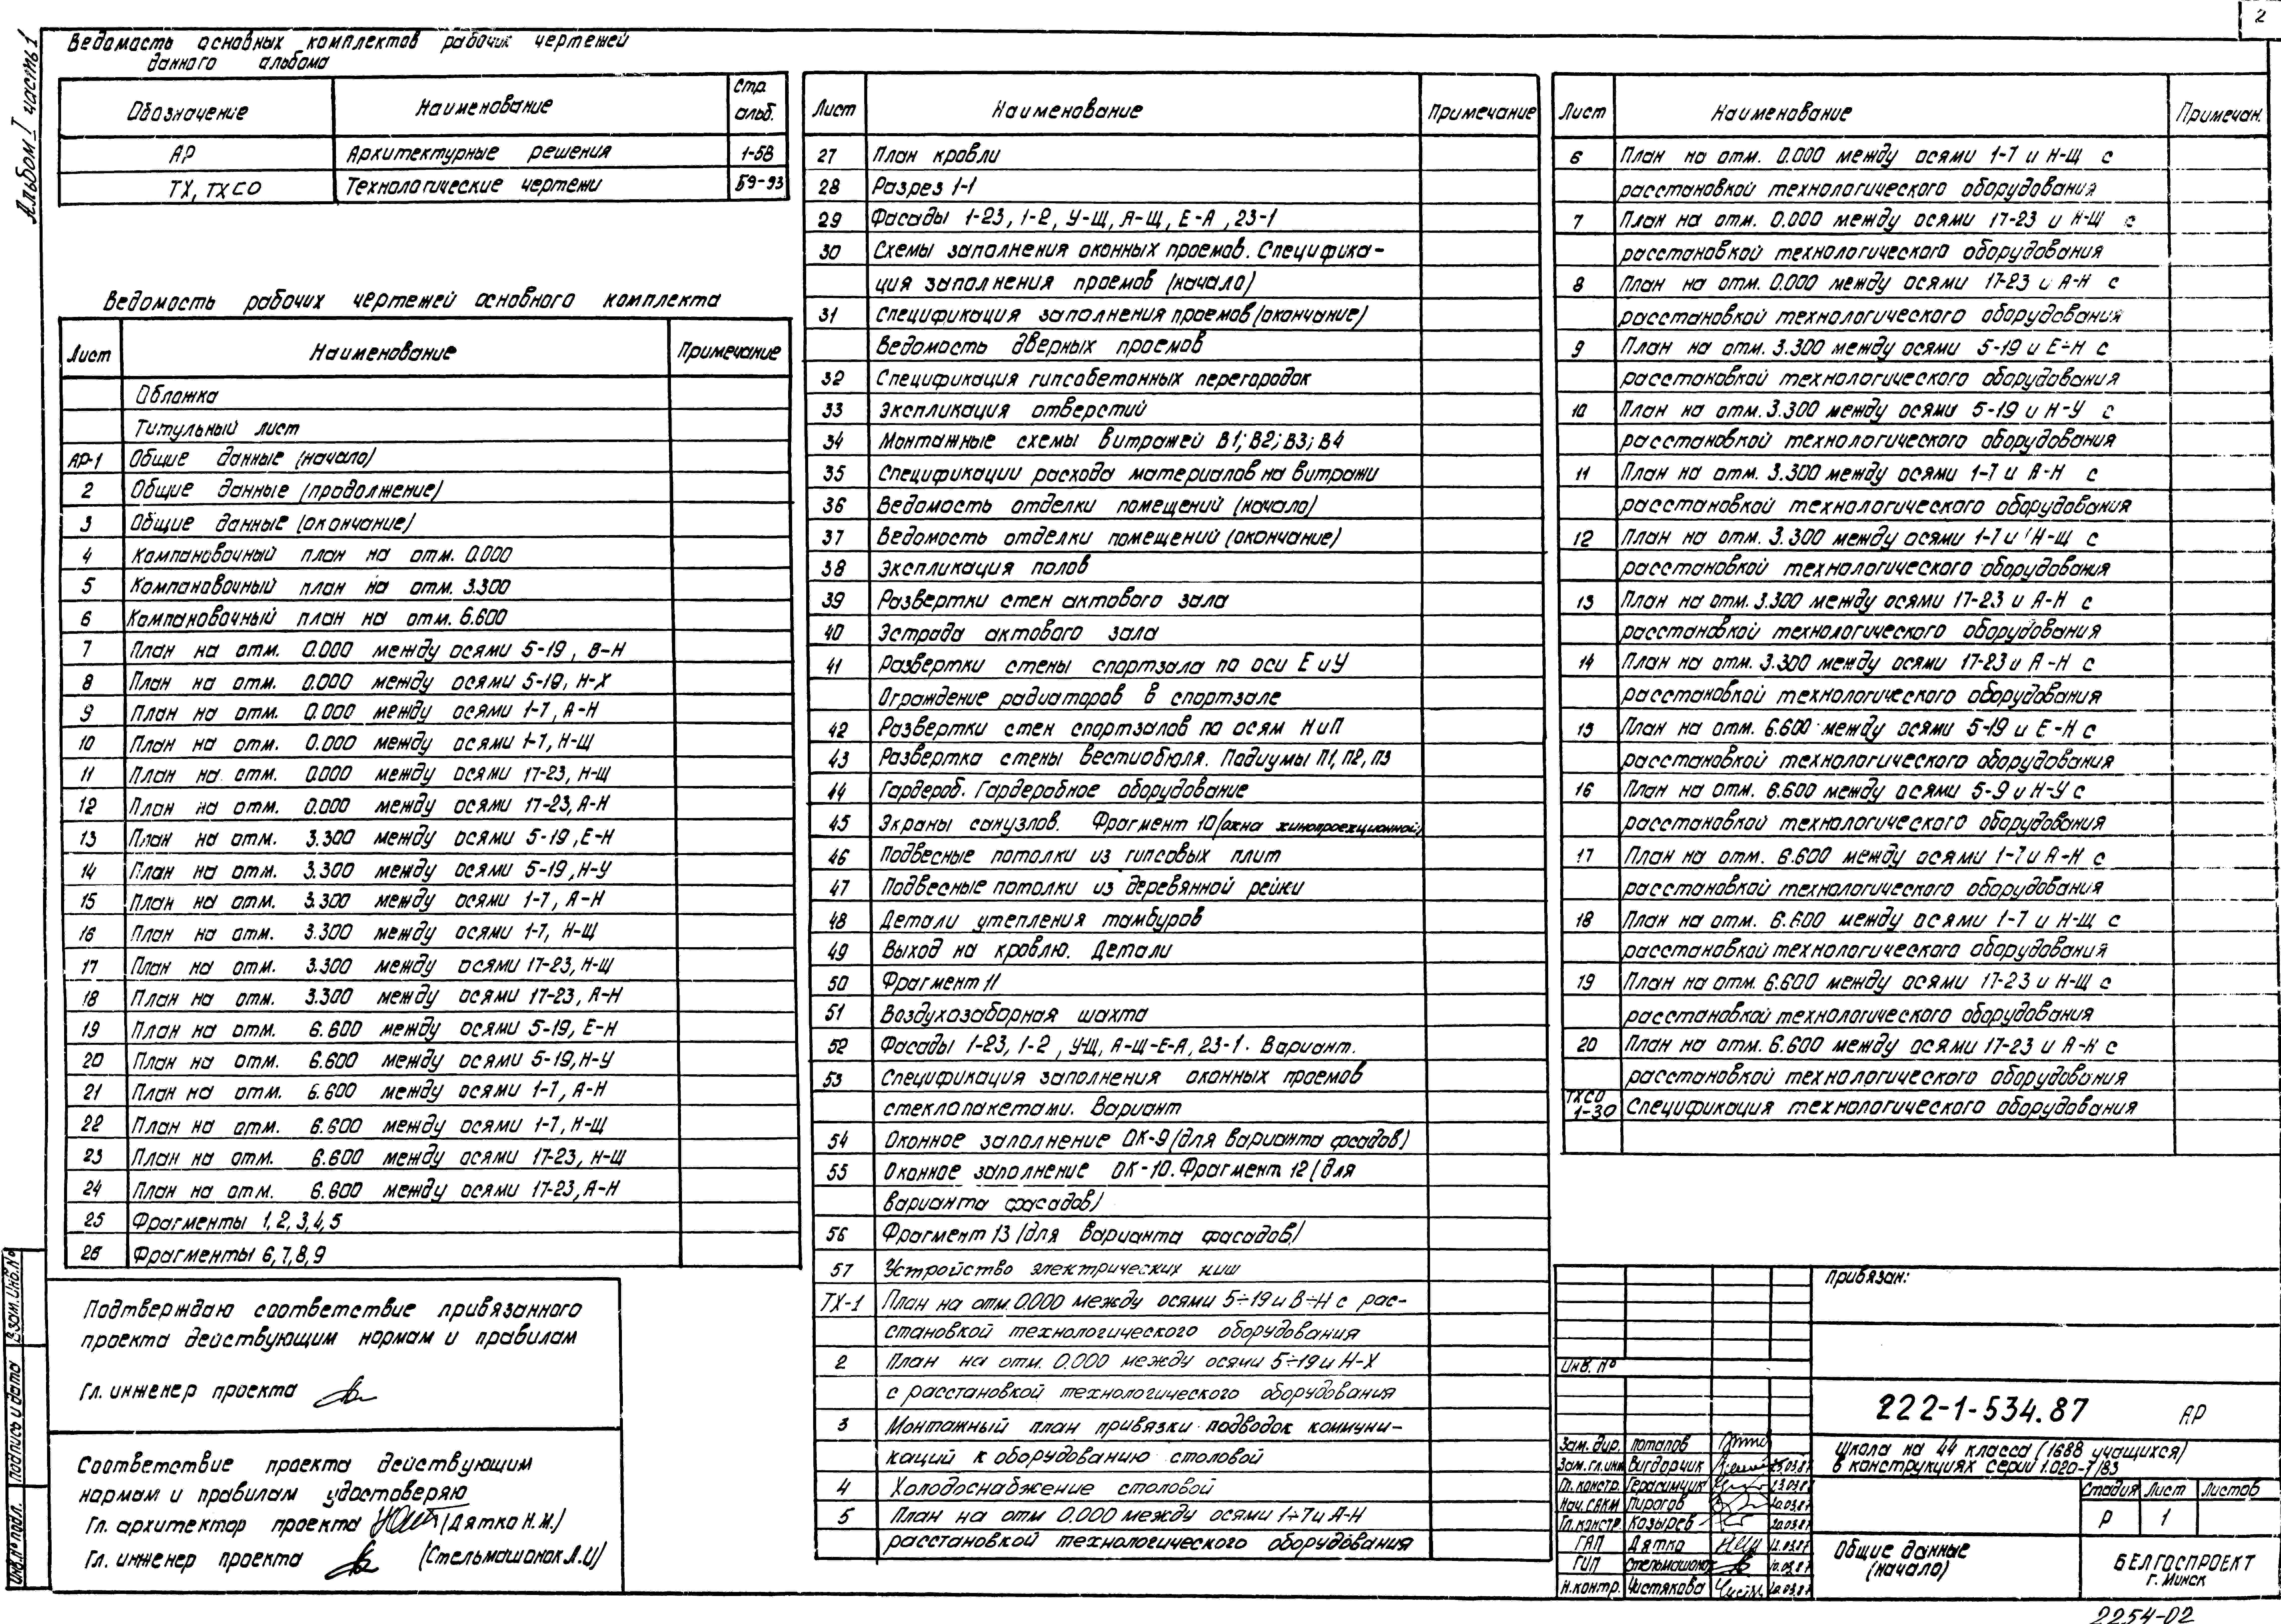 2
Альбом I часть 1
Ведомость основных комплектов рабочих чертежей
данного альбома
Обозначение Наименование Стр. альб.
АР Архитектурные решения 1-58
ТХ, ТХСО Технологические чертежи 59-93
Ведомость рабочих чертежей основного комплекта
Лист Наименование Примечание
Обложка
Титульный лист
АР-1 Общие данные (начало)
2 Общие данные (продолжение)
3 Общие данные (окончание)
4 Компановочный план на отм. 0.000
5 Компановочный план на отм. 3.300
6 Компановочный план на отм. 6.600
7 План на отм. 0.000 между осями 5-19, В-Н
8 План на отм. 0.000 между осями 5-19, Н-Х
9 План на отм. 0.000 между осями 1-7, А-Н
10 План на отм. 0.000 между осями 1-7, Н-Щ
11 План на отм. 0.000 между осями 17-23, Н-Щ
12 План на отм. 0.000 между осями 17-23, А-Н
13 План на отм. 3.300 между осями 5-19, Е-Н
14 План на отм. 3.300 между осями 5-19, Н-У
15 План на отм. 3.300 между осями 1-7, А-Н
16 План на отм. 3.300 между осями 1-7, Н-Щ
17 План на отм. 3.300 между осями 17-23, Н-Щ
18 План на отм. 3.300 между осями 17-23, А-Н
19 План на отм. 6.600 между осями 5-19, Е-Н
20 План на отм. 6.600 между осями 5-19, Н-У
21 План на отм. 6.600 между осями 1-7, А-Н
22 План на отм. 6.600 между осями 1-7, Н-Щ
23 План на отм. 6.600 между осями 17-23, Н-Щ
24 План на отм. 6.600 между осями 17-23, А-Н
25 Фрагменты 1, 2, 3, 4, 5
26 Фрагменты 6, 7, 8, 9
Подтверждаю соответствие привязанного
проекта действующим нормам и правилам
Гл. инженер проекта
Соответствие проекта действующим
нормам и правилам удостоверяю
Гл. архитектор проекта (Дятко Н.М.)
Гл. инженер проекта (Стельмашонок Л.И)
Взам. инб. №
Подпись и дата
Инв. № подл.
Лист Наименование Примечание
27 План кровли
28 Разрез 1-1
29 Фасады 1-23, 1-2, У-Щ, А-Щ, Е-А, 23-1
30 Схемы заполнения оконных проемов. Специфика-
ция заполнения проемов (начало)
31 Спецификация заполнения проемов (окончание)
Ведомость дверных проемов
32 Спецификация гипсобетонных перегородок
33 Экспликация отверстий
34 Монтажные схемы витражей В1; В2; В3; В4
35 Спецификации расхода материалов на витражи
36 Ведомость отделки помещений (начало)
37 Ведомость отделки помещений (окончание)
38 Экспликация полов
39 Развертки стен актового зала
40 Эстрада актового зала
41 Развертки стены спортзала по оси Е и У
Ограждение радиаторов в спортзале
42 Развертки стен спортзалов по осям Н и П
43 Развертка стены вестибюля. Подиумы П1, П2, П3
44 Гардероб. Гардеробное оборудование
45 Экраны санузлов. Фрагмент 10 (окна кинопроекционной)
46 Подвесные потолки из гипсовых плит
47 Подвесные потолки из деревянной рейки
48 Детали утепления тамбуров
49 Выход на кровлю. Детали
50 Фрагмент 11
51 Воздухозаборная шахта
52 Фасады 1-23, 1-2, У-Щ, А-Щ-Е-А, 23-1. Вариант.
53 Спецификация заполнения оконных проемов
стеклопакетами. Вариант
54 Оконное заполнение ОК-9 (для варианта фасадов)
55 Оконное заполнение ОК-10. Фрагмент 12 (для
варианта фасадов)
56 Фрагмент 13 (для варианта фасадов)
57 Устройство электрических ниш
ТХ-1 План на отм. 0.000 между осями 5÷19 и В÷Н с рас-
становкой технологического оборудования
2 План на отм. 0.000 между осями 5÷19 и Н-Х
с расстановкой технологического оборудования
3 Монтажный план привязки подводок коммуни-
каций к оборудованию столовой
4 Холодоснабжение столовой
5 План на отм 0.000 между осями 1÷7 и А-Н
расстановкой технологического оборудования
Лист Наименование Примечан.
6 План на отм. 0.000 между осями 1-7 и Н-Щ с
расстановкой технологического оборудования
7 План на отм. 0.000 между осями 17-23 и Н-Щ с
расстановкой технологического оборудования
8 План на отм. 0.000 между осями 17-23 и А-Н с
расстановкой технологического оборудования
9 План на отм. 3.300 между осями 5-19 и Е÷Н с
расстановкой технологического оборудования
10 План на отм. 3.300 между осями 5-19 и Н-У с
расстановкой технологического оборудования
11 План на отм. 3.300 между осями 1-7 и А-Н с
расстановкой технологического оборудования
12 План на отм. 3.300 между осями 1-7 и Н-Щ с
расстановкой технологического оборудования
13 План на отм. 3.300 между осями 17-23 и А-Н с
расстановкой технологического оборудования
14 План на отм. 3.300 между осями 17-23 и А-Н с
расстановкой технологического оборудования
15 План на отм. 6.600 между осями 5-19 и Е-Н с
расстановкой технологического оборудования
16 План на отм. 6.600 между осями 5-9 и Н-У с
расстановкой технологического оборудования
17 План на отм. 6.600 между осями 1-7 и А-Н с
расстановкой технологического оборудования
18 План на отм. 6.600 между осями 1-7 и Н-Щ с
расстановкой технологического оборудования
19 План на отм. 6.600 между осями 17-23 и Н-Щ с
расстановкой технологического оборудования
20 План на отм. 6.600 между осями 17-23 и А-Н с
расстановкой технологического оборудования
ТХСО 1-30 Спецификация технологического оборудования
Привязан:
Инв. №
222-1-534.87 АР
Зам. дир. Потапов
Зам. гл. инж Вигдорчик
Гл. констр. Герасимчик
Нач. САКМ Пирогов
Гл. констр. Козырев
ГАП Дятко
ГИП Стельмашонок
Н. контр. Чистякова
Школа на 44 класса (1688 учащихся)
в конструкциях серии 1.020-1/83
Стадия Лист Листов
Р 1
Общие данные
(начало)
БЕЛГОСПРОЕКТ
г. Минск
2254-02